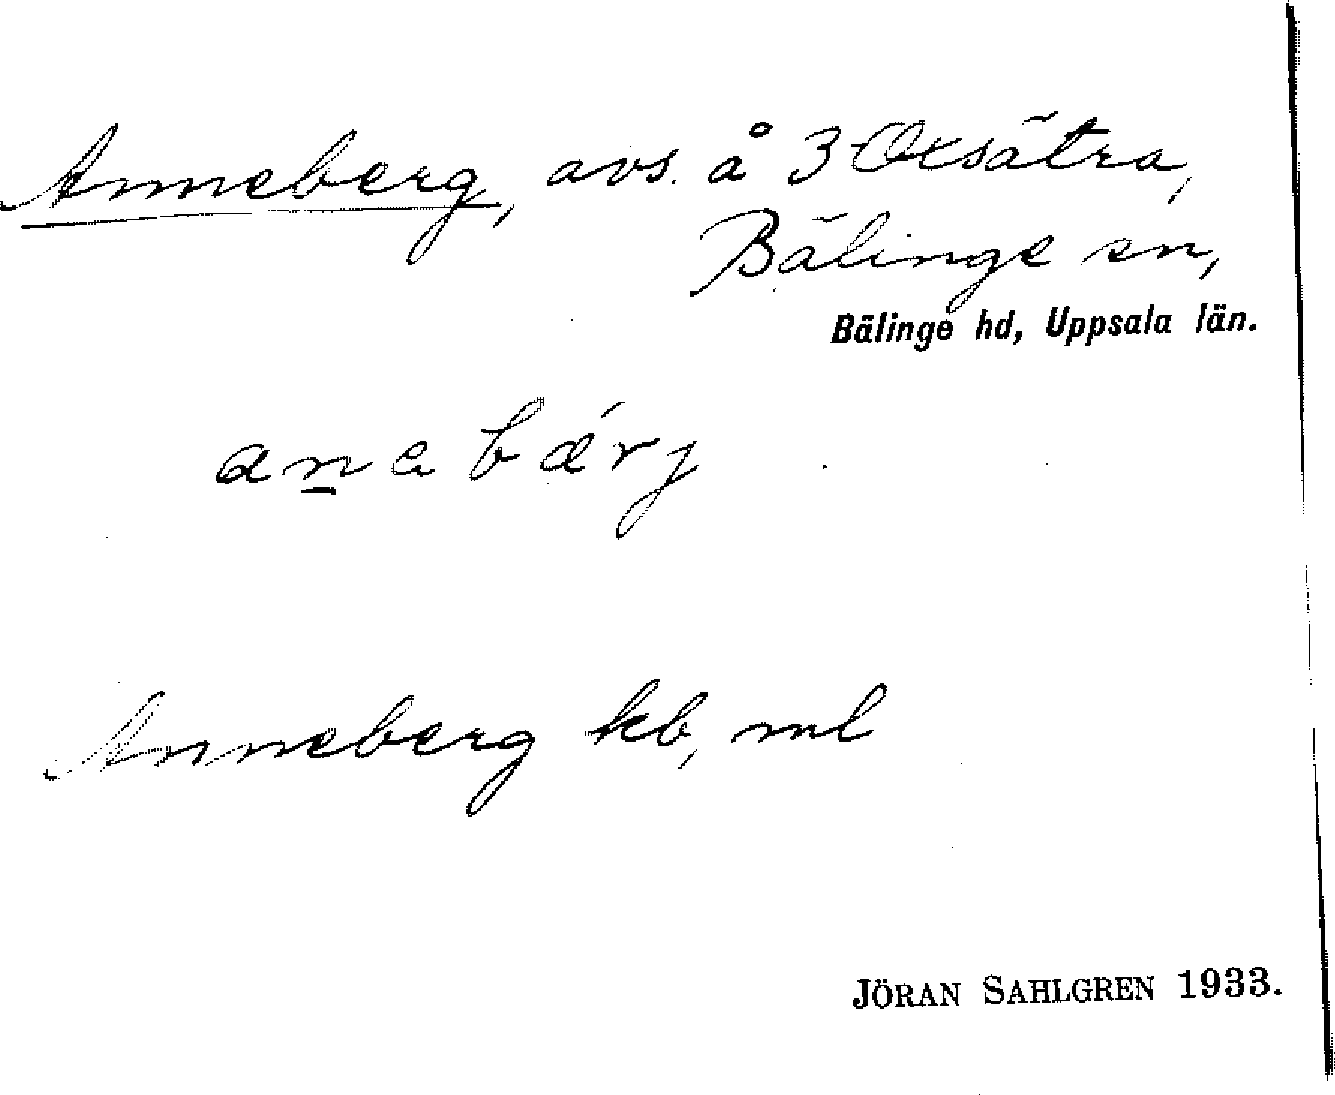 Anneberg, avs. å 3 Oxsätra,
Bälinge sn,
Bälinge hd, Uppsala län.
Anneberg kb, ml
JÖRAN SAHLGREN 1933.